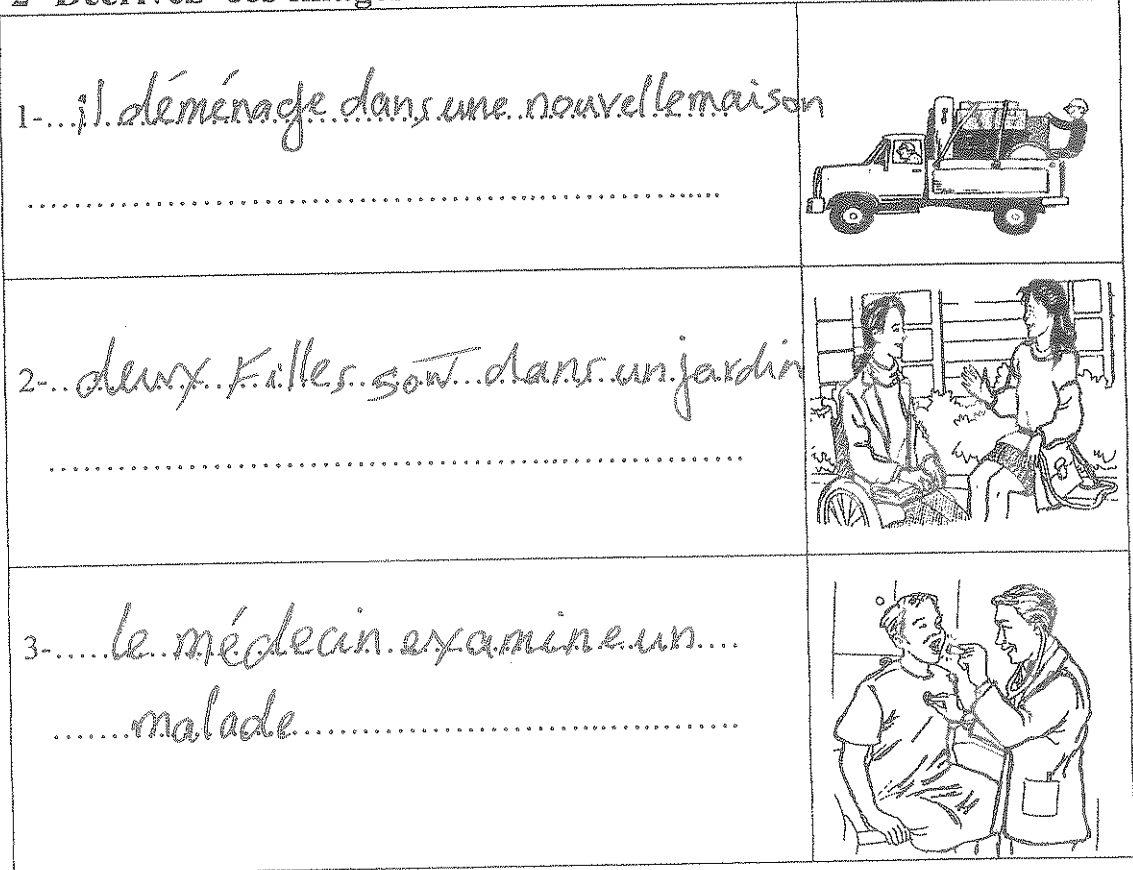 2- Décrivez ces images
1-...il déménage dans une nouvelle maison
2-..deux Filles sont dans un jardin
3-.....le médecin examine un....
malade